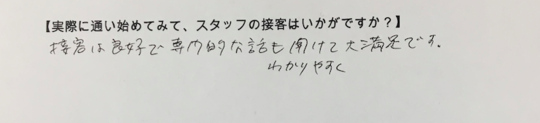 【実際に通い始めてみて、スタッフの接客はいかがですか？】
接客は良好で専門的な話も聞けて大満足です。
わかりやすく